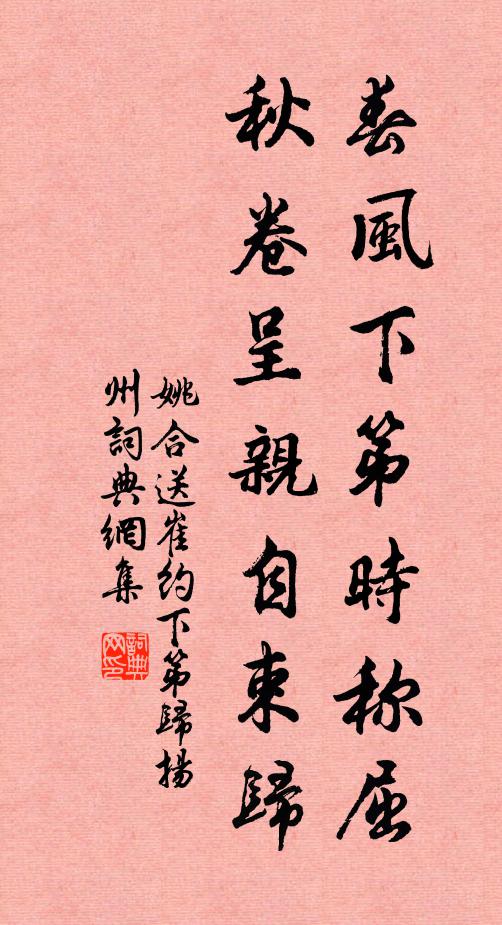 春風下第時称屈
秋卷呈親自束歸
姚合送崔約下第歸揚
州詞典網集
詞典
网印